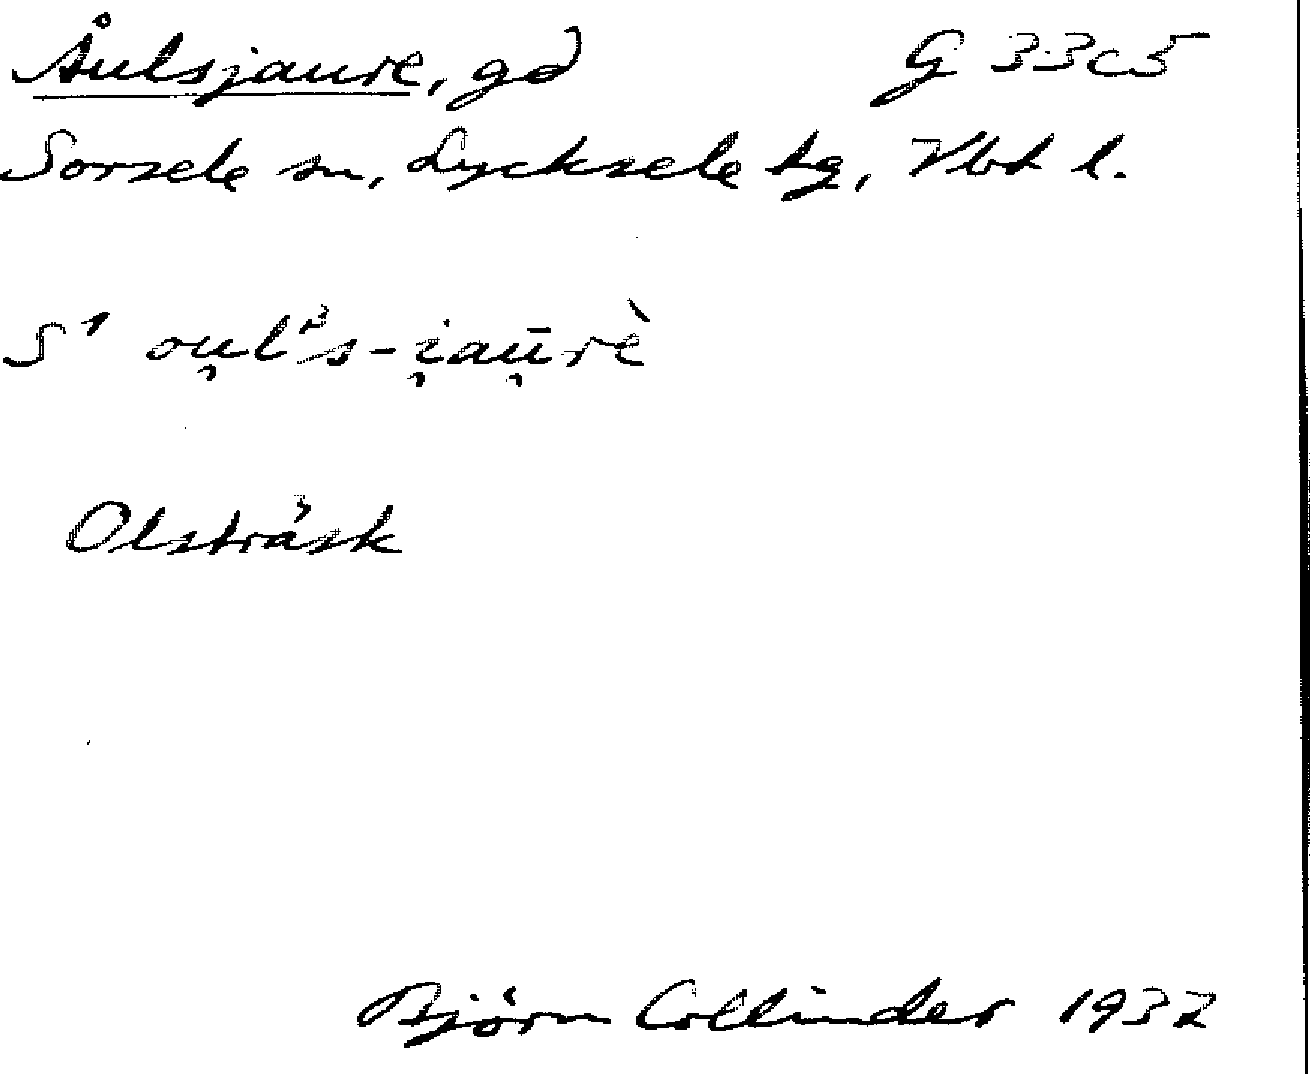 Åulsjaure, gd G 33c5
Sorsele sn, Lycksele tg, Vbt l.
S¹ ou̯lˀs-i̯aū̯rè
Olsträsk
Björn Collinder 1932